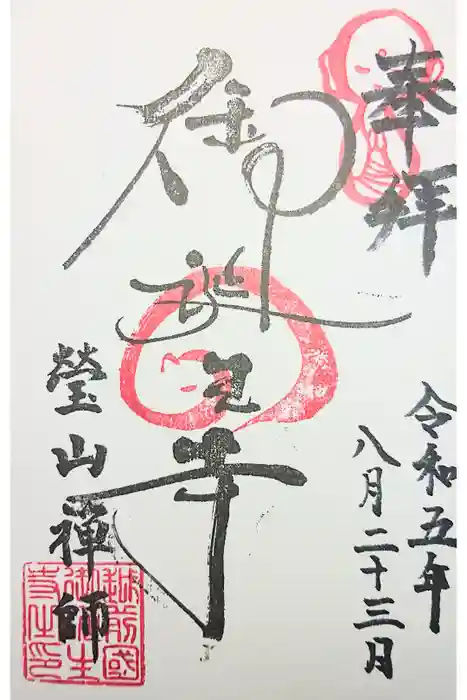 奉拝
令和五年
八月二十三日
御誕生寺
瑩山禪師
越前國
御誕生
寺之印